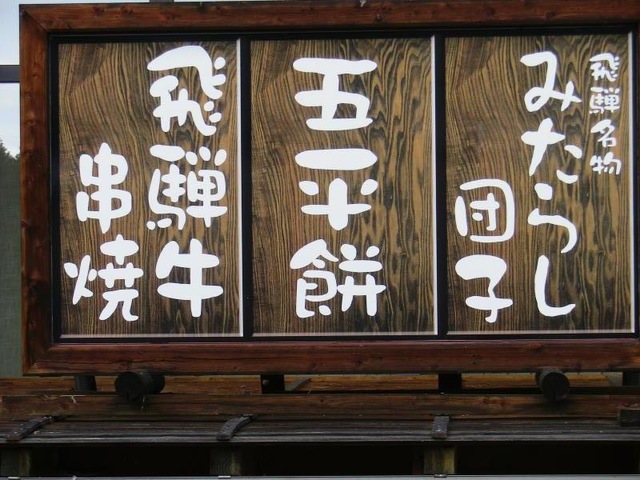 飛騨名物
みたらし
団子
五平餅
飛騨牛
串焼